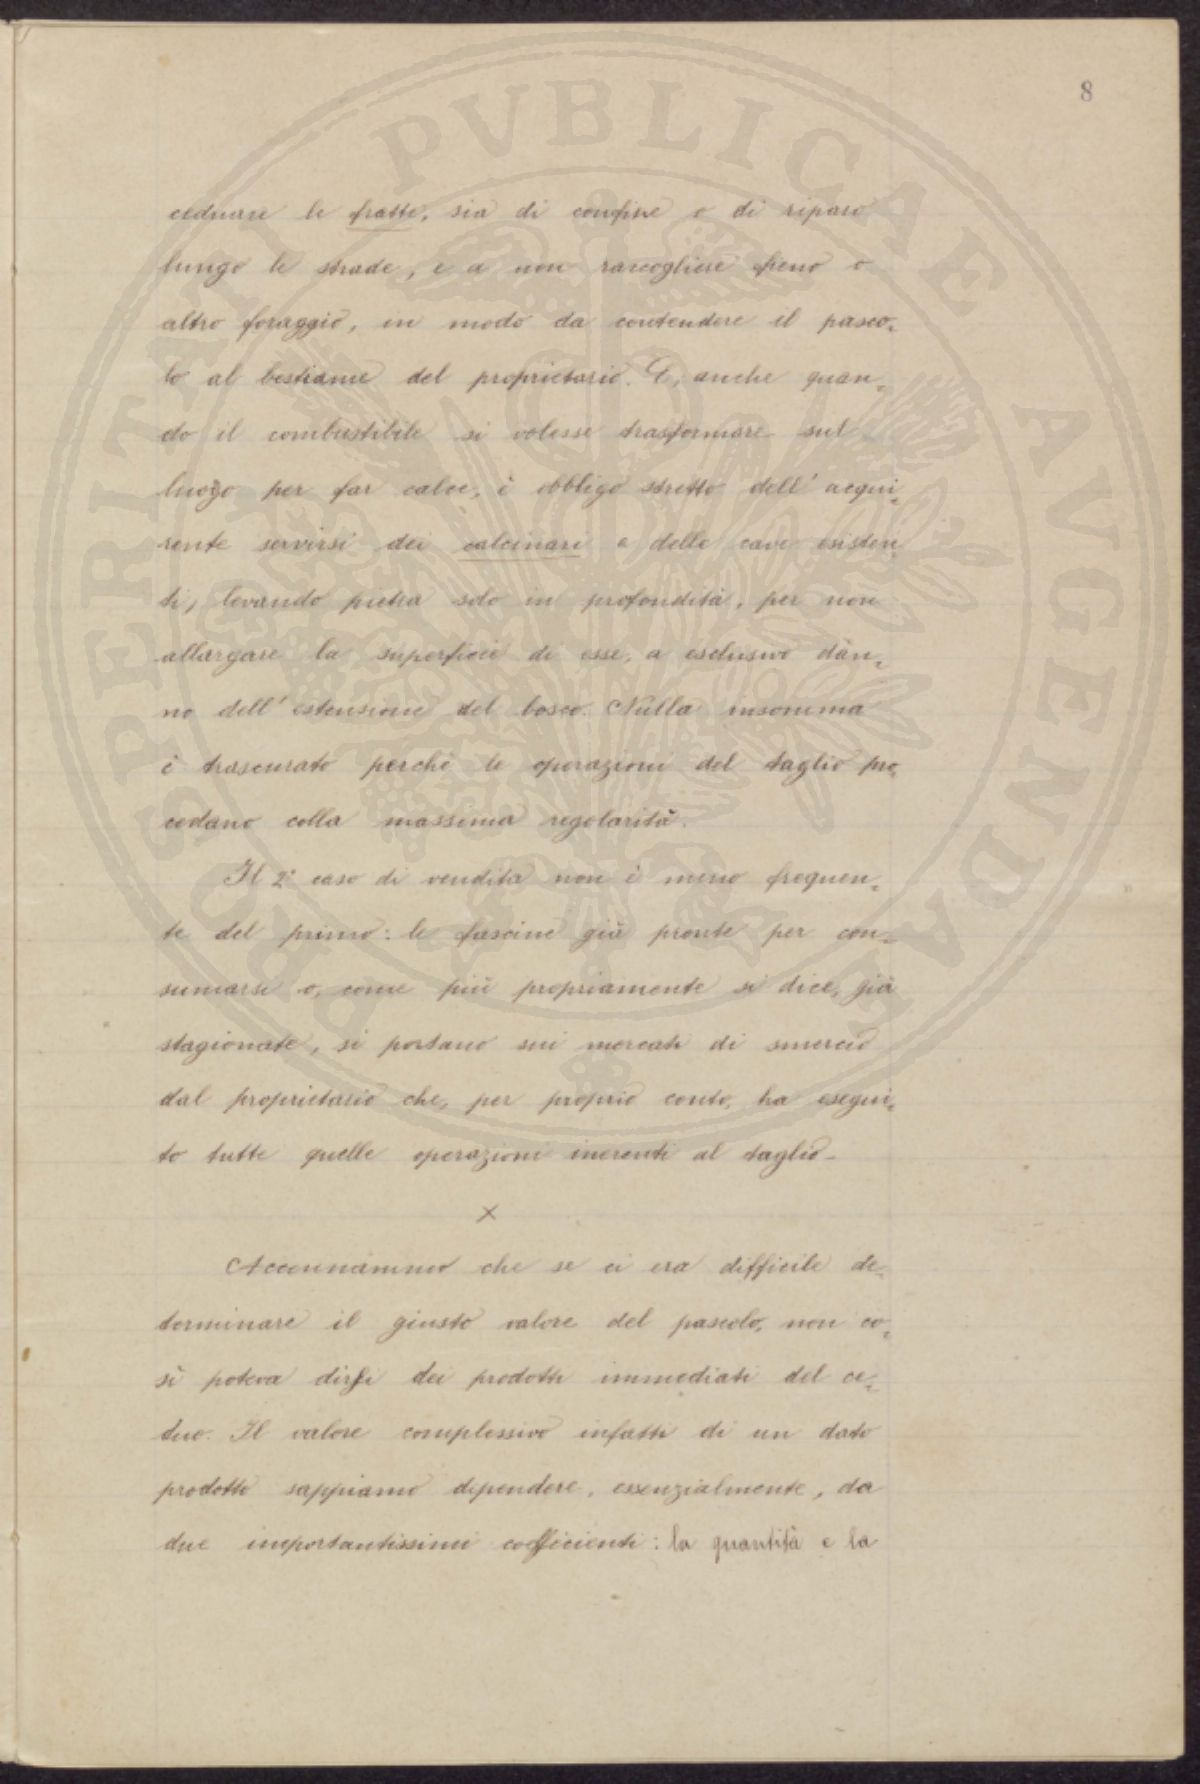 8
PROSPERITATI PVBLICAE AVGENDAE
ceduare le fratte, sia di confine o di riparo
lungo le strade, e a non raccogliere fieno o
altro foraggio, in modo da contendere il pasco-
lo al bestiame del proprietario. E, anche quan-
do il combustibile si volesse trasformare sul
luogo per far calce, è obbligo stretto dell'acqui-
rente servirsi dei calcinari e delle cave esisten-
ti, levando pietra solo in profondità, per non
allargare la superficie di esse, a esclusivo dan-
no dell'estensione del bosco. Nulla insomma
è trascurato perchè le operazioni del taglio pro-
cedano colla massima regolarità.
Il 2° caso di vendita non è meno frequen-
te del primo: le fascine già pronte per con-
sumarsi o, come più propriamente si dice, già
stagionate, si portano sui mercati di smercio
dal proprietario che, per proprio conto, ha esegui-
to tutte quelle operazioni inerenti al taglio-
×
Accennammo che se ci era difficile de-
terminare il giusto valore del pascolo, non co-
sì poteva dirsi dei prodotti immediati del ce-
duo. Il valore complessivo infatti di un dato
prodotto sappiamo dipendere, essenzialmente, da
due importantissimi coefficienti: la quantità e la